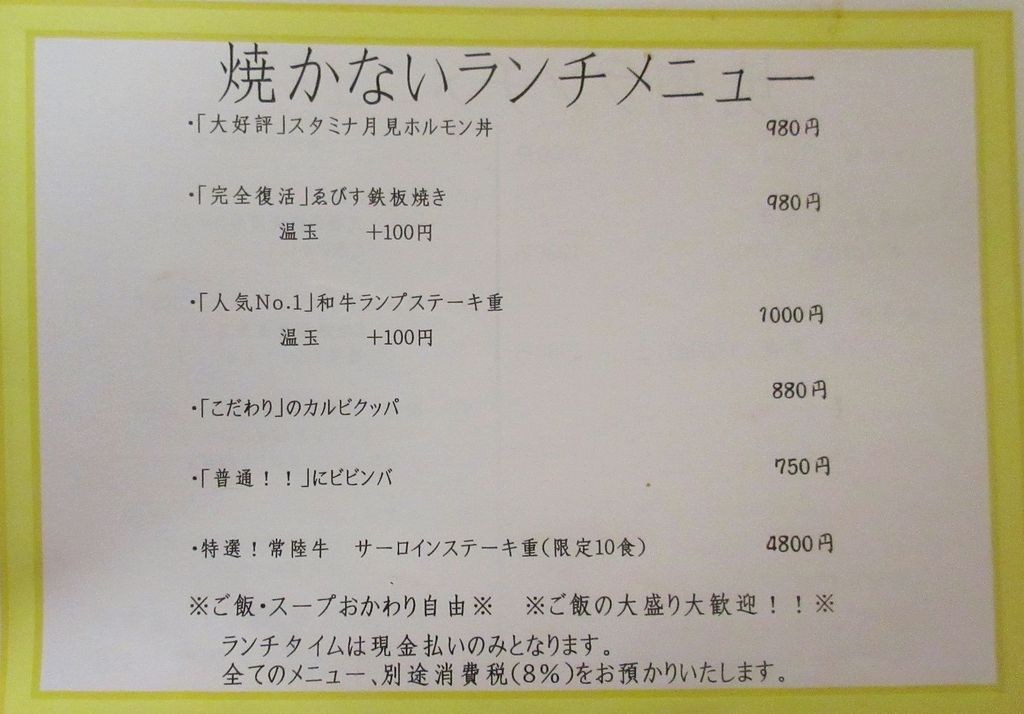 焼かないランチメニュー
・「大好評」スタミナ月見ホルモン丼 980円
・「完全復活」ゑびす鉄板焼き 980円
温玉 +100円
・「人気No.1」和牛ランプステーキ重 1000円
温玉 +100円
・「こだわり」のカルビクッパ 880円
・「普通！！」にビビンバ 750円
・特選！常陸牛 サーロインステーキ重(限定10食) 4800円
※ご飯・スープおかわり自由※ ※ご飯の大盛り大歓迎！！※
ランチタイムは現金払いのみとなります。
全てのメニュー、別途消費税(8%)をお預かりいたします。